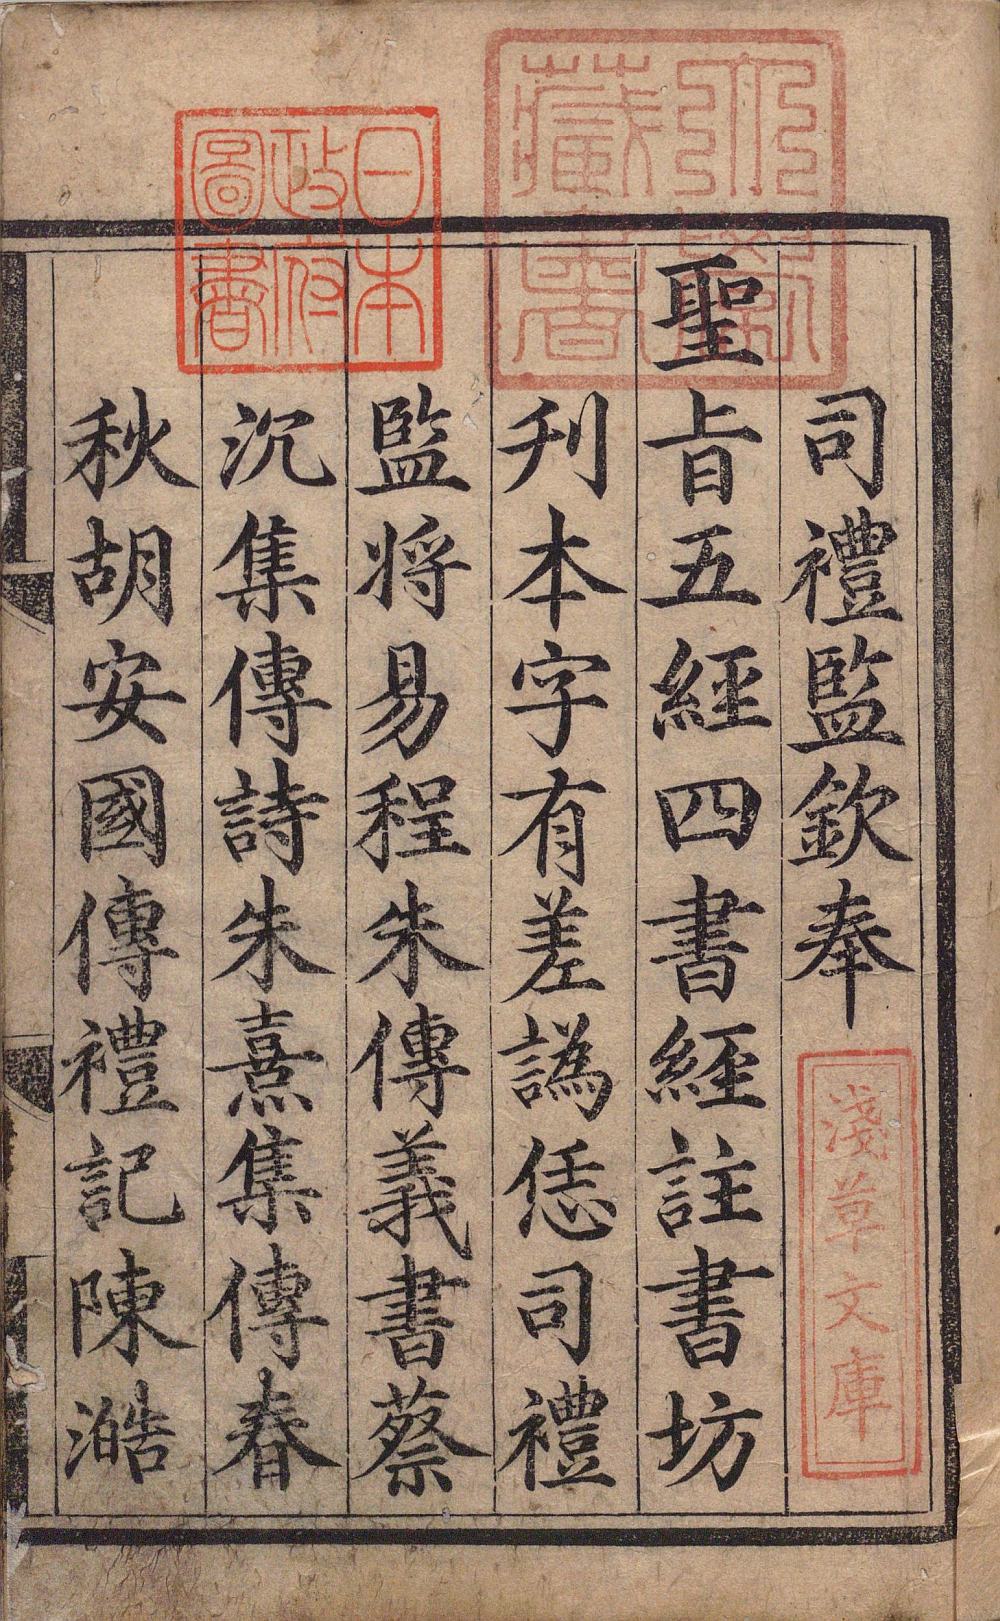 司禮監欽奉
聖旨五經四書經註書坊
刋本字有差譌恁司禮
監将易程朱傳義書蔡
沉集傳詩朱熹集傳春
秋胡安國傳禮記陳澔
淺草文庫
日本
政府
圖書
藏書